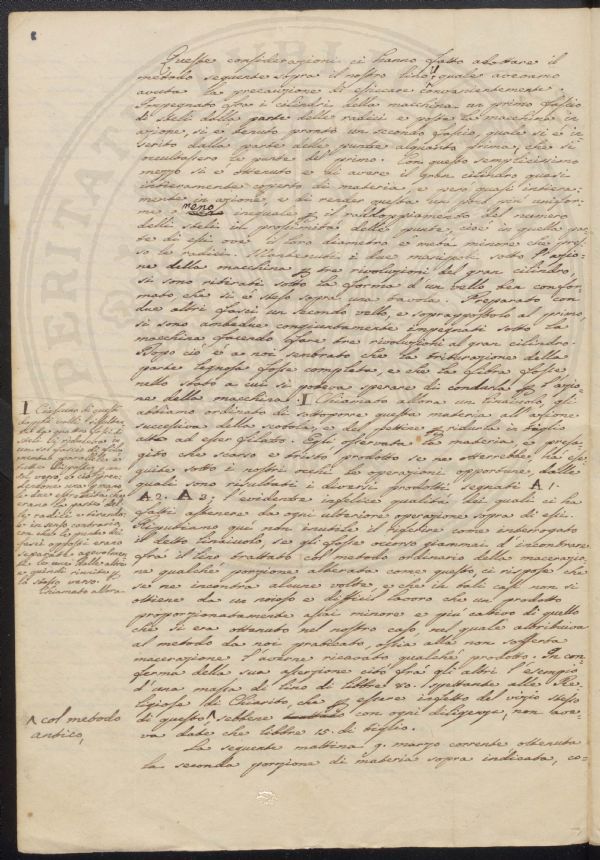 Queste considerazioni ci hanno fatto adottare il
metodo seguente sopra il nostro lino, quale avevamo
avuta la precauzione di essiccare convenientemente.
Impegnato fra i cilindri della macchina un primo fascio
di steli dalla parte delle radici e posta la macchina in
azione, si è tenuto pronto un secondo fascio, quale si è in-
serito dalla parte delle punte alquanto prima, che si
occultassero le punte del primo. Con questo semplicissimo
mezzo si è ottenuto e di avere il gran cilindro quasi
intieramente coperto di materia, e però quasi intiera-
mente in azione, e di render questa un poco più unifor-
me o meno ineguale p il raddoppiamento del numero
delli steli in prossimità delle punte, cioè in quella par-
te di essi ove il loro diametro è metà minore che pres-
so le radici. Mantenuti i due manipoli sotto l'azio-
ne della macchina p tre rivoluzioni del gran cilindro,
si sono ritirati sotto la forma d'un vello ben confor-
mato che si è steso sopra una tavola. Preparato con
due altri fasci un secondo vello, e soprapostolo al primo,
si sono ambedue congiuntamente impegnati sotto la
macchina facendo fare tre rivoluzioni al gran cilindro.
Dopo ciò è a noi sembrato che la triturazione della
parte legnosa fosse completa, e che la fibra fosse
nello stato a cui si poteva sperare di condurla p l'azio-
ne della macchina. I Chiamato allora un linaiuolo, gli
abbiamo ordinato di sottoporre questa materia all'azione
successiva della scotola, e del pettine p ridurla in tiglio
atto ad esser filato. Egli osservata la materia, e presa-
gito che scarso e tristo prodotto se ne otterrebbe, ha ese-
guite sotto i nostri occhi le operazioni opportune, dalle
quali sono resultati i diversi prodotti segnati A 1.
A 2. A 3; l'evidente infelice qualità dei quali ci ha
fatti astenere da ogni ulteriore operazione sopra di essi.
Reputiamo qui non inutile il riferire come interrogato
il detto linaiuolo, se gli fosse occorso giammai d'incontrare
fra il lino trattato col metodo ordinario della macerazio-
ne qualche porzione alterata come questo, ci rispose che
se ne incontra alcune volte, e che in tali casi non si
ottiene da un noioso e difficil lavoro che un prodotto
proporzionatamente assai minore e più cativo di quello
che si era ottenuto nel nostro caso, nel quale attribuiva
al metodo da noi praticato, ossia alla non sofferta
macerazione l'averne ricavato qualche prodotto. In con-
ferma della sua asserzione citò fra gli altri l'esempio
d'una massa di lino di libbre 80. spettante alle Re-
ligiose di Chiarito, che p essere infetto del vizio stesso
di questo ^ sebbene con ogni diligenza, non ave-
va dato che libbre 15. di tiglio.
La seguente mattina 9. marzo corrente ottenuta
la seconda porzione di materia sopra indicata, co-
I Ciascuno di questi
doppi velli resultan-
ti da quattro fasci di
steli si riduceva in
un sol fascio di fila-
menti paralleli
tutti disposti p un
sol verso, e ciò pren-
dendone con mano
le due estremità che
erano la parte del-
le radici e stirandole
in senso contrario,
con che le punte dei
fasci opposti erano
separate agevolmen-
te le une dalle altre
e quindi riunite p
lo stesso verso. p
Chiamato allora.
^ col metodo
antico,